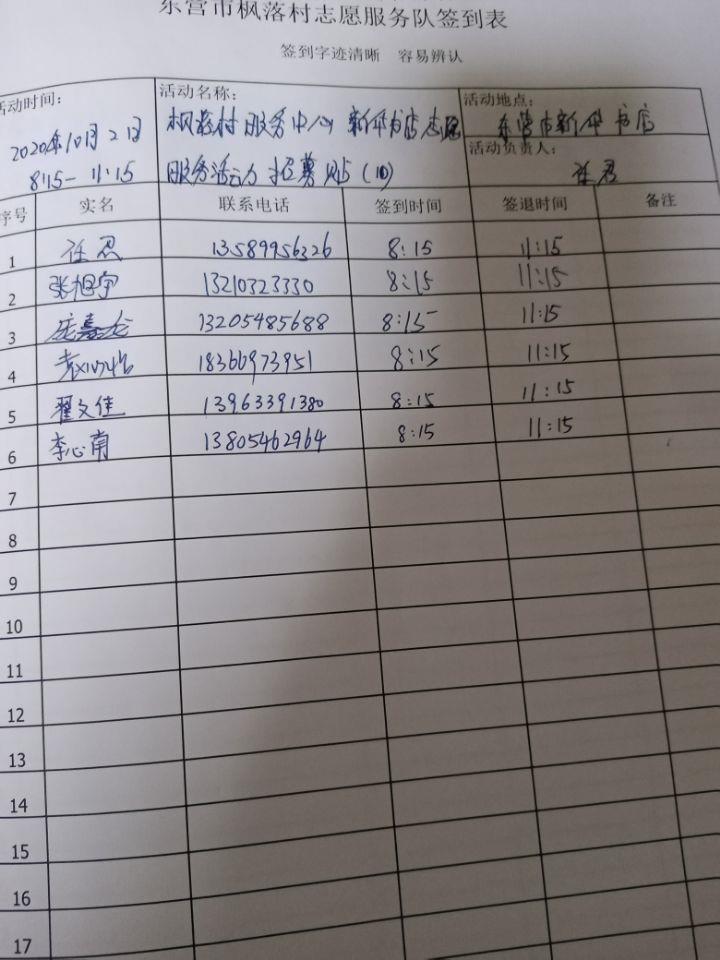 东营市枫落村志愿服务队签到表
签到字迹清晰 容易辨认
活动时间：
2020年10月2日
8:15-11:15
活动名称：
枫落村服务中心新华书店志愿
服务活动招募贴(10)
活动地点：
东营市新华书店
活动负责人：
任君
序号 实名 联系电话 签到时间 签退时间 备注
1 任君 13589956326 8:15 11:15
2 张旭宇 13210323330 8:15 11:15
3 13205485688 8:15 11:15
4 18366973951 8:15 11:15
5 翟文佳 13963391380 8:15 11:15
6 李心南 13805462964 8:15 11:15
7
8
9
10
11
12
13
14
15
16
17